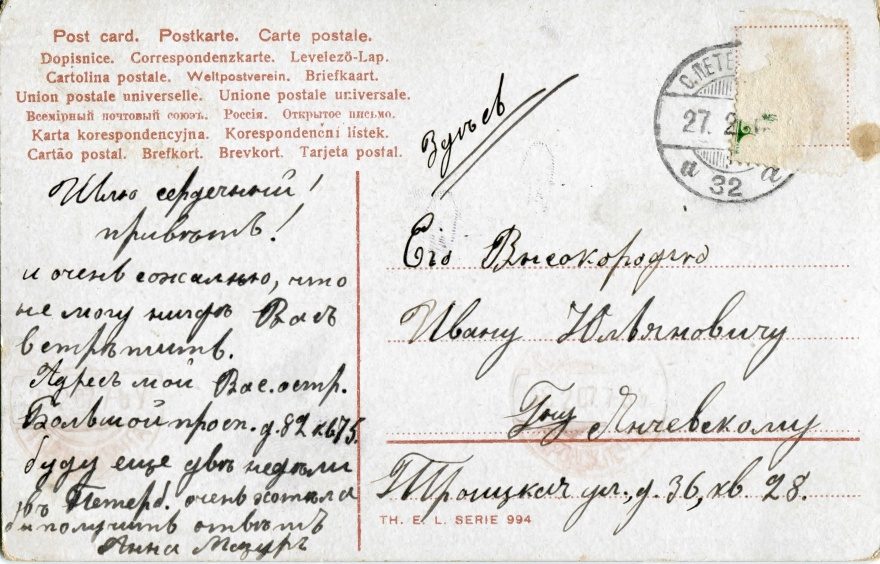 Post card. Postkarte. Carte postale.
Dopisnice. Correspondenzkarte. Levelező-Lap.
Cartolina postale. Weltpostverein. Briefkaart.
Union postale universelle. Unione postale universale.
Всемірный почтовый союзъ. Россія. Открытое письмо.
Karta korespondencyjna. Korespondenční lístek.
Cartão postal. Brefkort. Brevkort. Tarjeta postal.
Шлю сердечный!
привѣтъ!
и очень сожалѣю, что
не могу нигдѣ Васъ
встрѣтить.
Адресъ мой Вас. остр.
Большой просп. д. 82 кв 75.
буду еще двѣ недѣли
въ Петерб. очень хотѣла
бы получить отвѣтъ
Анна Мазуръ
Здѣсь
С. ПЕТЕ
27. 2
а 32 а
Его Высокородію
Ивану Юльяновичу
Гну Янчевскому
Троицкая ул., д. 36, кв 28.
TH. E. L. SERIE 994